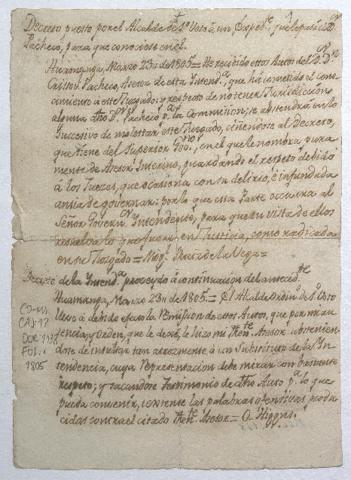 Decreto puesto por el Alcalde de 1º Voto à un Exped.te q.e le pasò D.n
Pacheco, para que conociese en el.
Huamanga, Marzo 23,, de 1805 = He recibido estos Autos del D.r D.n
Pacheco, Asesor de esta Intend.a que ha cometido el cono-
cimiento à este Juzgado, y respecto de no tener Jurisdiccion
alguna dho S.or Pacheco p.a la Commision, se abstendrà en lo
Succesivo de molestar este Juzgado, ciñendose al Decreto,
que tiene del Superior Gov.no, en el que le nombra pura-
mente de Asesor Interino, guardando el respeto debido
à los Jueces, que ocasiona con su delirio, è infundada
ansia de governar: por lo que esta Parte ocurrirà al
Señor Govern.r Intendente, para que en vista de ellos
resuelva lo que fuere en Justicia, como radicada
en su Juzgado =
Decreto de la Intend.a proveydo à continuacion del anteced.te
Huamanga, Marzo 23,, de 1805 = El Alcalde Ordin.o de 1º Voto
lleve à debido efecto la remision de estos Autos, que por mi au-
sencia, y Orden, que le dexè, le hizo mi Then.te Asesor: abstenien-
dose de insultar tan
tendencia, cuya representacion debe mirar con
respeto; y sacandose Testimonio de dho Auto p.a lo que
pueda convenir, texense las palabras ofensivas produ-
cidas contra el citado Then.te Asesor = O Higgins
CO-MS.
CAJ. 17
DOC
FOL. 1
1805